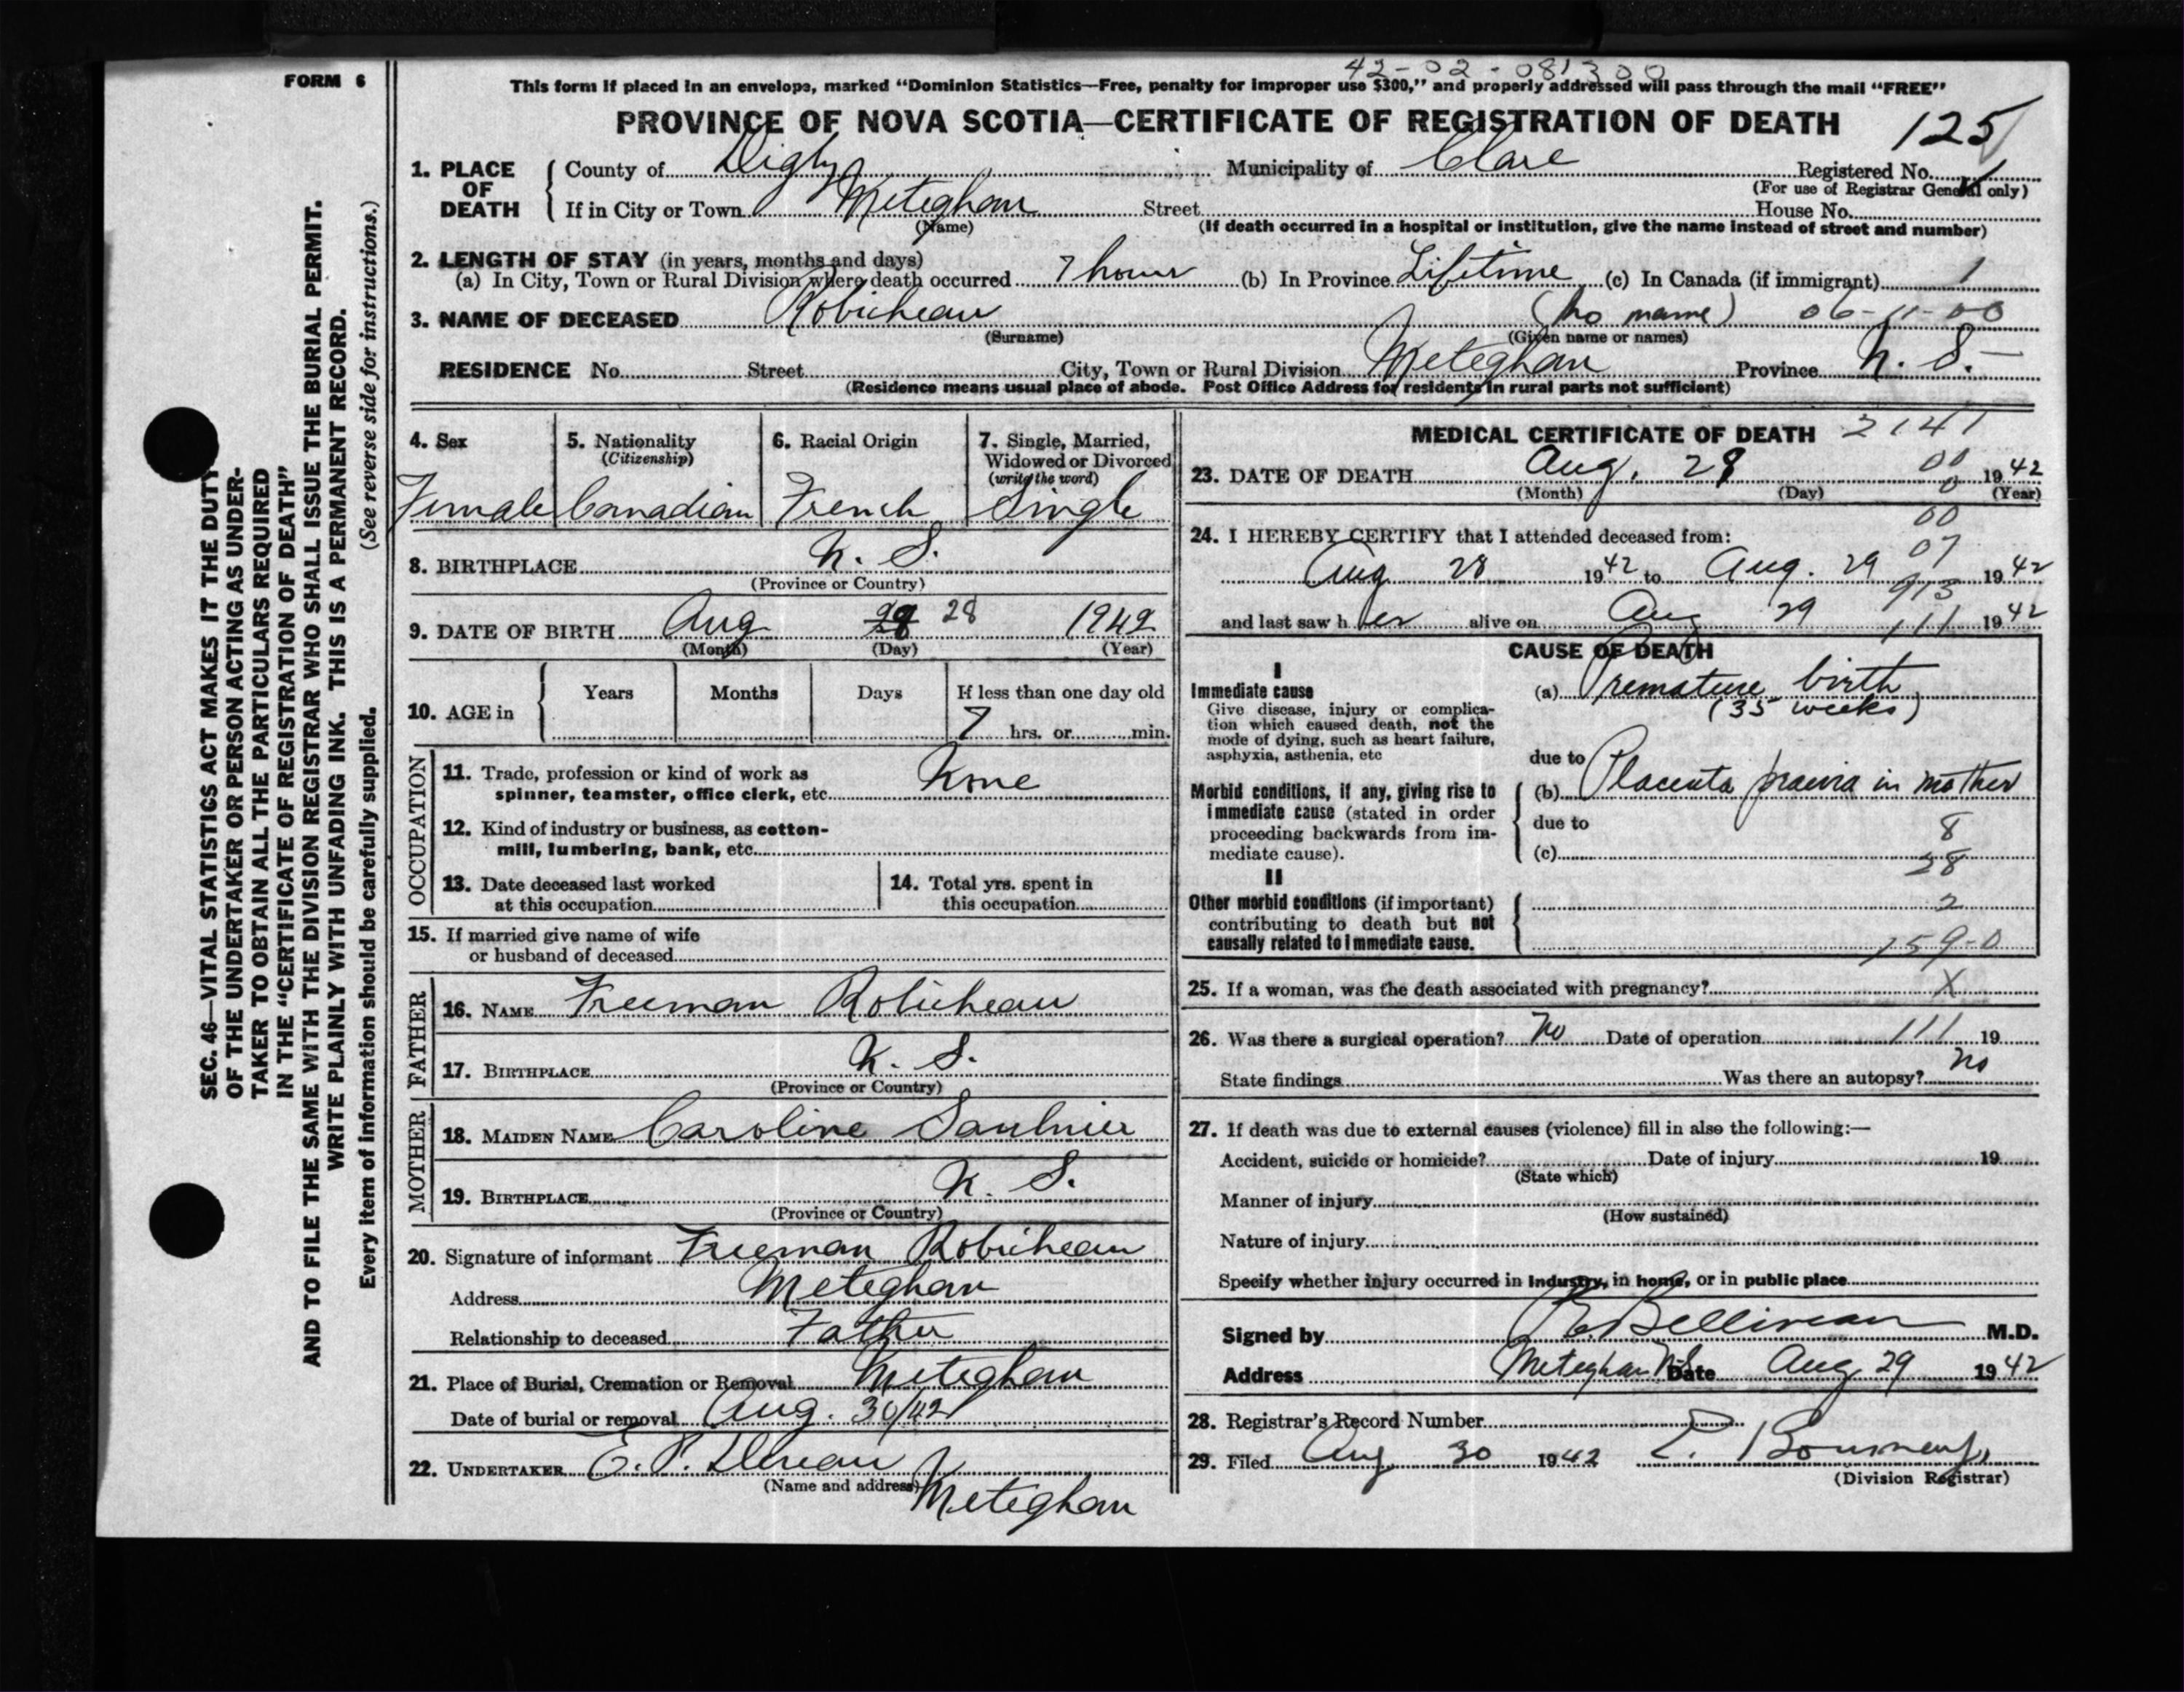 FORM 6
42-02-081300
This form if placed in an envelope, marked “Dominion Statistics—Free, penalty for improper use $300,” and properly addressed will pass through the mail “FREE”
PROVINCE OF NOVA SCOTIA—CERTIFICATE OF REGISTRATION OF DEATH 125
1. PLACE OF DEATH
County of Digby Municipality of Clare Registered No.
(For use of Registrar General only)
If in City or Town Meteghan Street House No.
(Name) (If death occurred in a hospital or institution, give the name instead of street and number)
2. LENGTH OF STAY (in years, months and days)
(a) In City, Town or Rural Division where death occurred 7 hours (b) In Province Lifetime (c) In Canada (if immigrant) 1
3. NAME OF DECEASED Robicheau (no name) 06-11-00
(Surname) (Given name or names)
RESIDENCE No. Street City, Town or Rural Division Meteghan Province N. S.
(Residence means usual place of abode. Post Office Address for residents in rural parts not sufficient)
4. Sex 5. Nationality (Citizenship) 6. Racial Origin 7. Single, Married, Widowed or Divorced (write the word)
Female Canadian French Single
8. BIRTHPLACE N. S.
(Province or Country)
9. DATE OF BIRTH Aug 28 1942
(Month) (Day) (Year)
10. AGE in Years Months Days If less than one day old
7 hrs. or min.
OCCUPATION
11. Trade, profession or kind of work as
spinner, teamster, office clerk, etc. None
12. Kind of industry or business, as cotton-
mill, lumbering, bank, etc.
13. Date deceased last worked
at this occupation
14. Total yrs. spent in
this occupation
15. If married give name of wife
or husband of deceased
FATHER
16. NAME Freeman Robicheau
17. BIRTHPLACE N. S.
(Province or Country)
MOTHER
18. MAIDEN NAME Caroline Saulnier
19. BIRTHPLACE N. S.
(Province or Country)
20. Signature of informant Freeman Robicheau
Address Meteghan
Relationship to deceased Father
21. Place of Burial, Cremation or Removal Meteghan
Date of burial or removal Aug. 30/42
22. UNDERTAKER E. P.
(Name and address) Meteghan
MEDICAL CERTIFICATE OF DEATH 2141
23. DATE OF DEATH Aug. 00 1942
(Month) (Day) 0 (Year)
00
24. I HEREBY CERTIFY that I attended deceased from:
07
Aug 28 1942 to Aug. 29 1942
913
and last saw her alive on Aug 29 111 1942
CAUSE OF DEATH
I
Immediate cause
Give disease, injury or complica-
tion which caused death, not the
mode of dying, such as heart failure,
asphyxia, asthenia, etc
(a) Premature birth
(35 weeks)
due to
Morbid conditions, if any, giving rise to
immediate cause (stated in order
proceeding backwards from im-
mediate cause).
(b) Placenta praevia in mother
due to 8
(c) 28
II
Other morbid conditions (if important)
contributing to death but not
causally related to immediate cause.
2
159-0
25. If a woman, was the death associated with pregnancy? X
26. Was there a surgical operation? No Date of operation 111 19
State findings Was there an autopsy? No
27. If death was due to external causes (violence) fill in also the following:—
Accident, suicide or homicide? Date of injury 19
(State which)
Manner of injury
(How sustained)
Nature of injury
Specify whether injury occurred in industry, in home, or in public place
Signed by Belliveau M.D.
Address Meteghan N.S. Date Aug 29 1942
28. Registrar's Record Number
29. Filed Aug 30 1942 E.
(Division Registrar)
SEC. 46—VITAL STATISTICS ACT MAKES IT THE DUTY
OF THE UNDERTAKER OR PERSON ACTING AS UNDER-
TAKER TO OBTAIN ALL THE PARTICULARS REQUIRED
IN THE “CERTIFICATE OF REGISTRATION OF DEATH”
AND TO FILE THE SAME WITH THE DIVISION REGISTRAR WHO SHALL ISSUE THE BURIAL PERMIT.
WRITE PLAINLY WITH UNFADING INK. THIS IS A PERMANENT RECORD.
Every item of information should be carefully supplied. (See reverse side for instructions.)